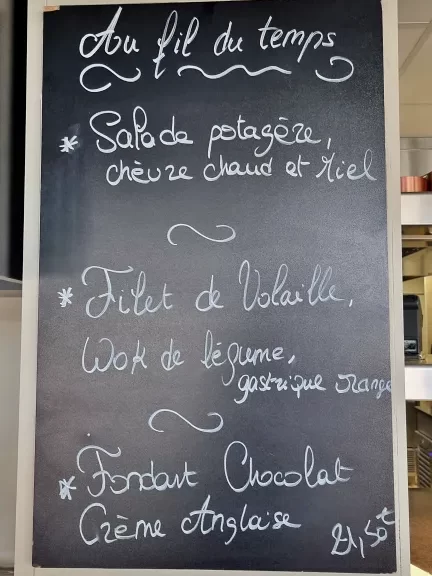 Au fil du temps
* Salade potagère,
chèvre chaud et Miel
* Filet de Volaille,
Wok de légume,
gastrique orange
* Fondant Chocolat
Crème Anglaise
21,50€